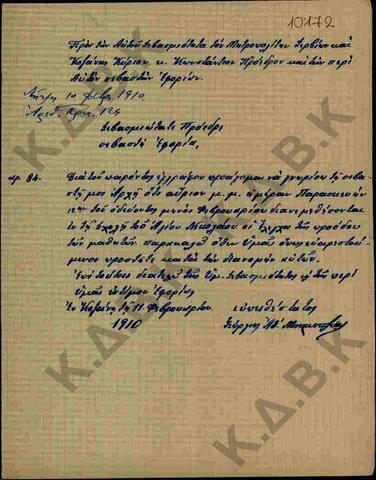 10172
Πρὸς τὴν Αὐτοῦ Σεβασμιότητα τὸν Μητροπολίτην Σερβίων καὶ
Κοζάνης Κύριον κ. Κωνστάντιον Πρόεδρον καὶ τὴν περὶ
Αὐτὸν σεβαστὴν Ἐφορίαν.
10 Φεβρ. 1910
Ἀριθ. Πρωτ. 124
Σεβασμιώτατε Πρόεδρε
σεβαστὴ Ἐφορία,
ἀρ. 84. Διὰ τοῦ παρόντος ἐγγράφου προάγομαι νὰ γνωρίσω τῇ σεβασ
τῇ μοι Ἀρχῇ ὅτι αὔριον μ.μ. ἡμέραν Παρασκευὴν
τοῦ ὁδεύοντος μηνὸς Φεβρουαρίου διανεμηθήσονται
ἐν τῇ σχολῇ τοῦ Ἁγίου Νικολάου οἱ ἔλεγχοι τῆς προόδου
τῶν μαθητῶν παρακαλῶ ὅθεν Ὑμᾶς
μενος προστῆτε κατὰ τὴν διανομὴν αὐτῶν.
Ἐπὶ τούτοις διατελῶ τῆς Ὑμ. Σεβασμιότητος καὶ τῆς περὶ
Ὑμᾶς Ἐφορίας
Ἐν Κοζάνῃ τῇ 11 Φεβρουαρίου εὐπειθέστατος
1910 Γεώργιος
Κ.Δ.Β.Κ
Κ.Δ.Β.Κ
Κ.Δ.Β.Κ